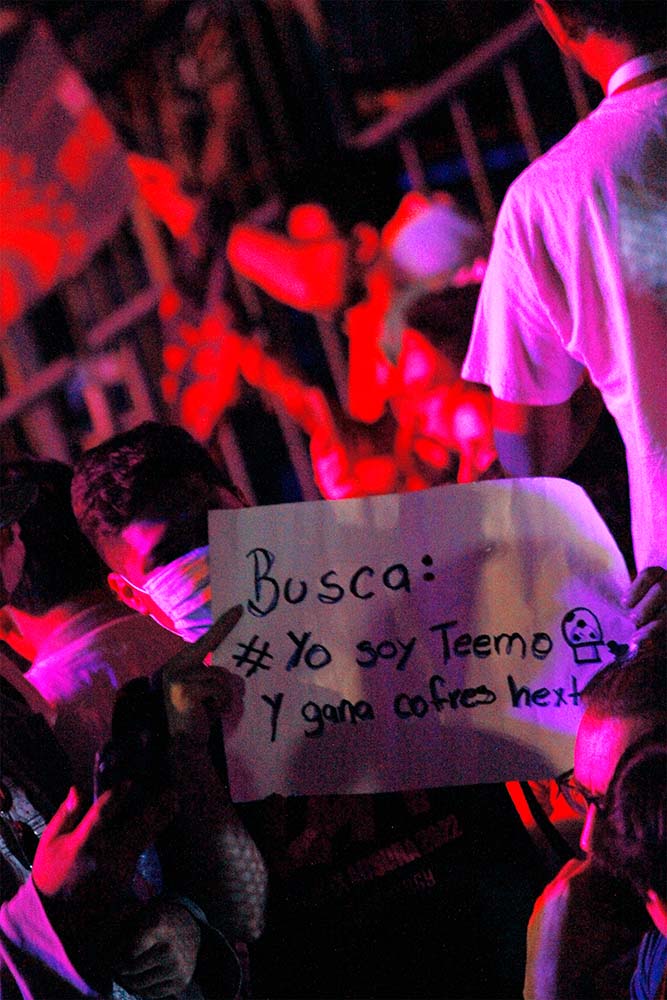 Busca:
# Yo soy Teemo
Y gana cofres hext
2022